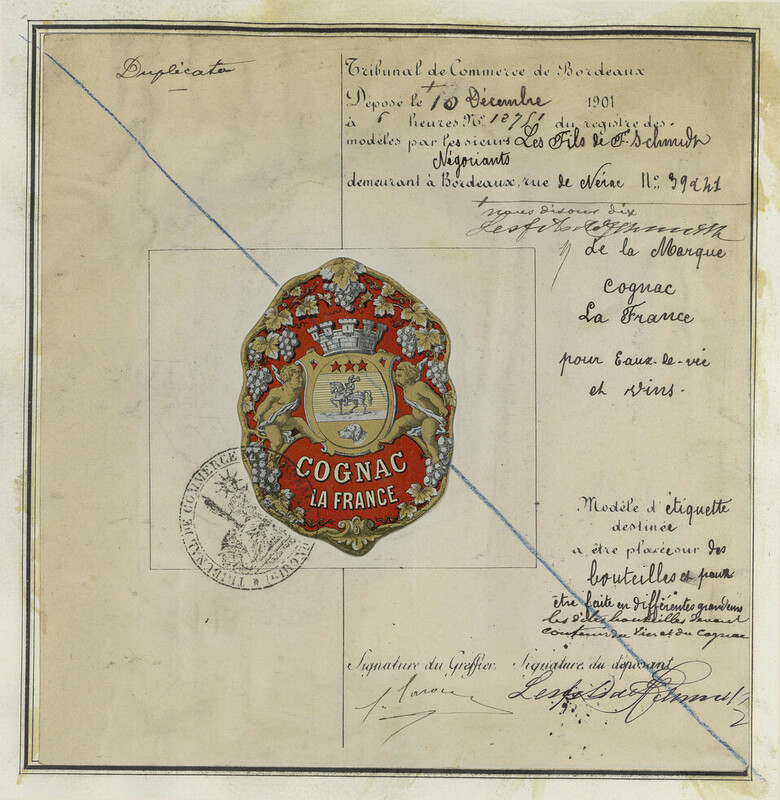 Duplicata
Tribunal de Commerce de Bordeaux
Déposé le 10 Décembre 1901
à heures No. du registre des
modèles par les sieurs Les Fils de F. Schmidt
Négociants
demeurant à Bordeaux, rue de Nérac No. 39 à 41
nous disons dix
De la Marque
Cognac
La France
pour Eaux-de-vie
et vins.
COGNAC
LA FRANCE
TRIBUNAL DE COMMERCE
Modèle d'étiquette
destinée
a être placée sur des
bouteilles et pour
être faite en différentes grandeurs
les dites bouteilles devant
contenir du Vin et du Cognac
Signature du Greffier. Signature du déposant